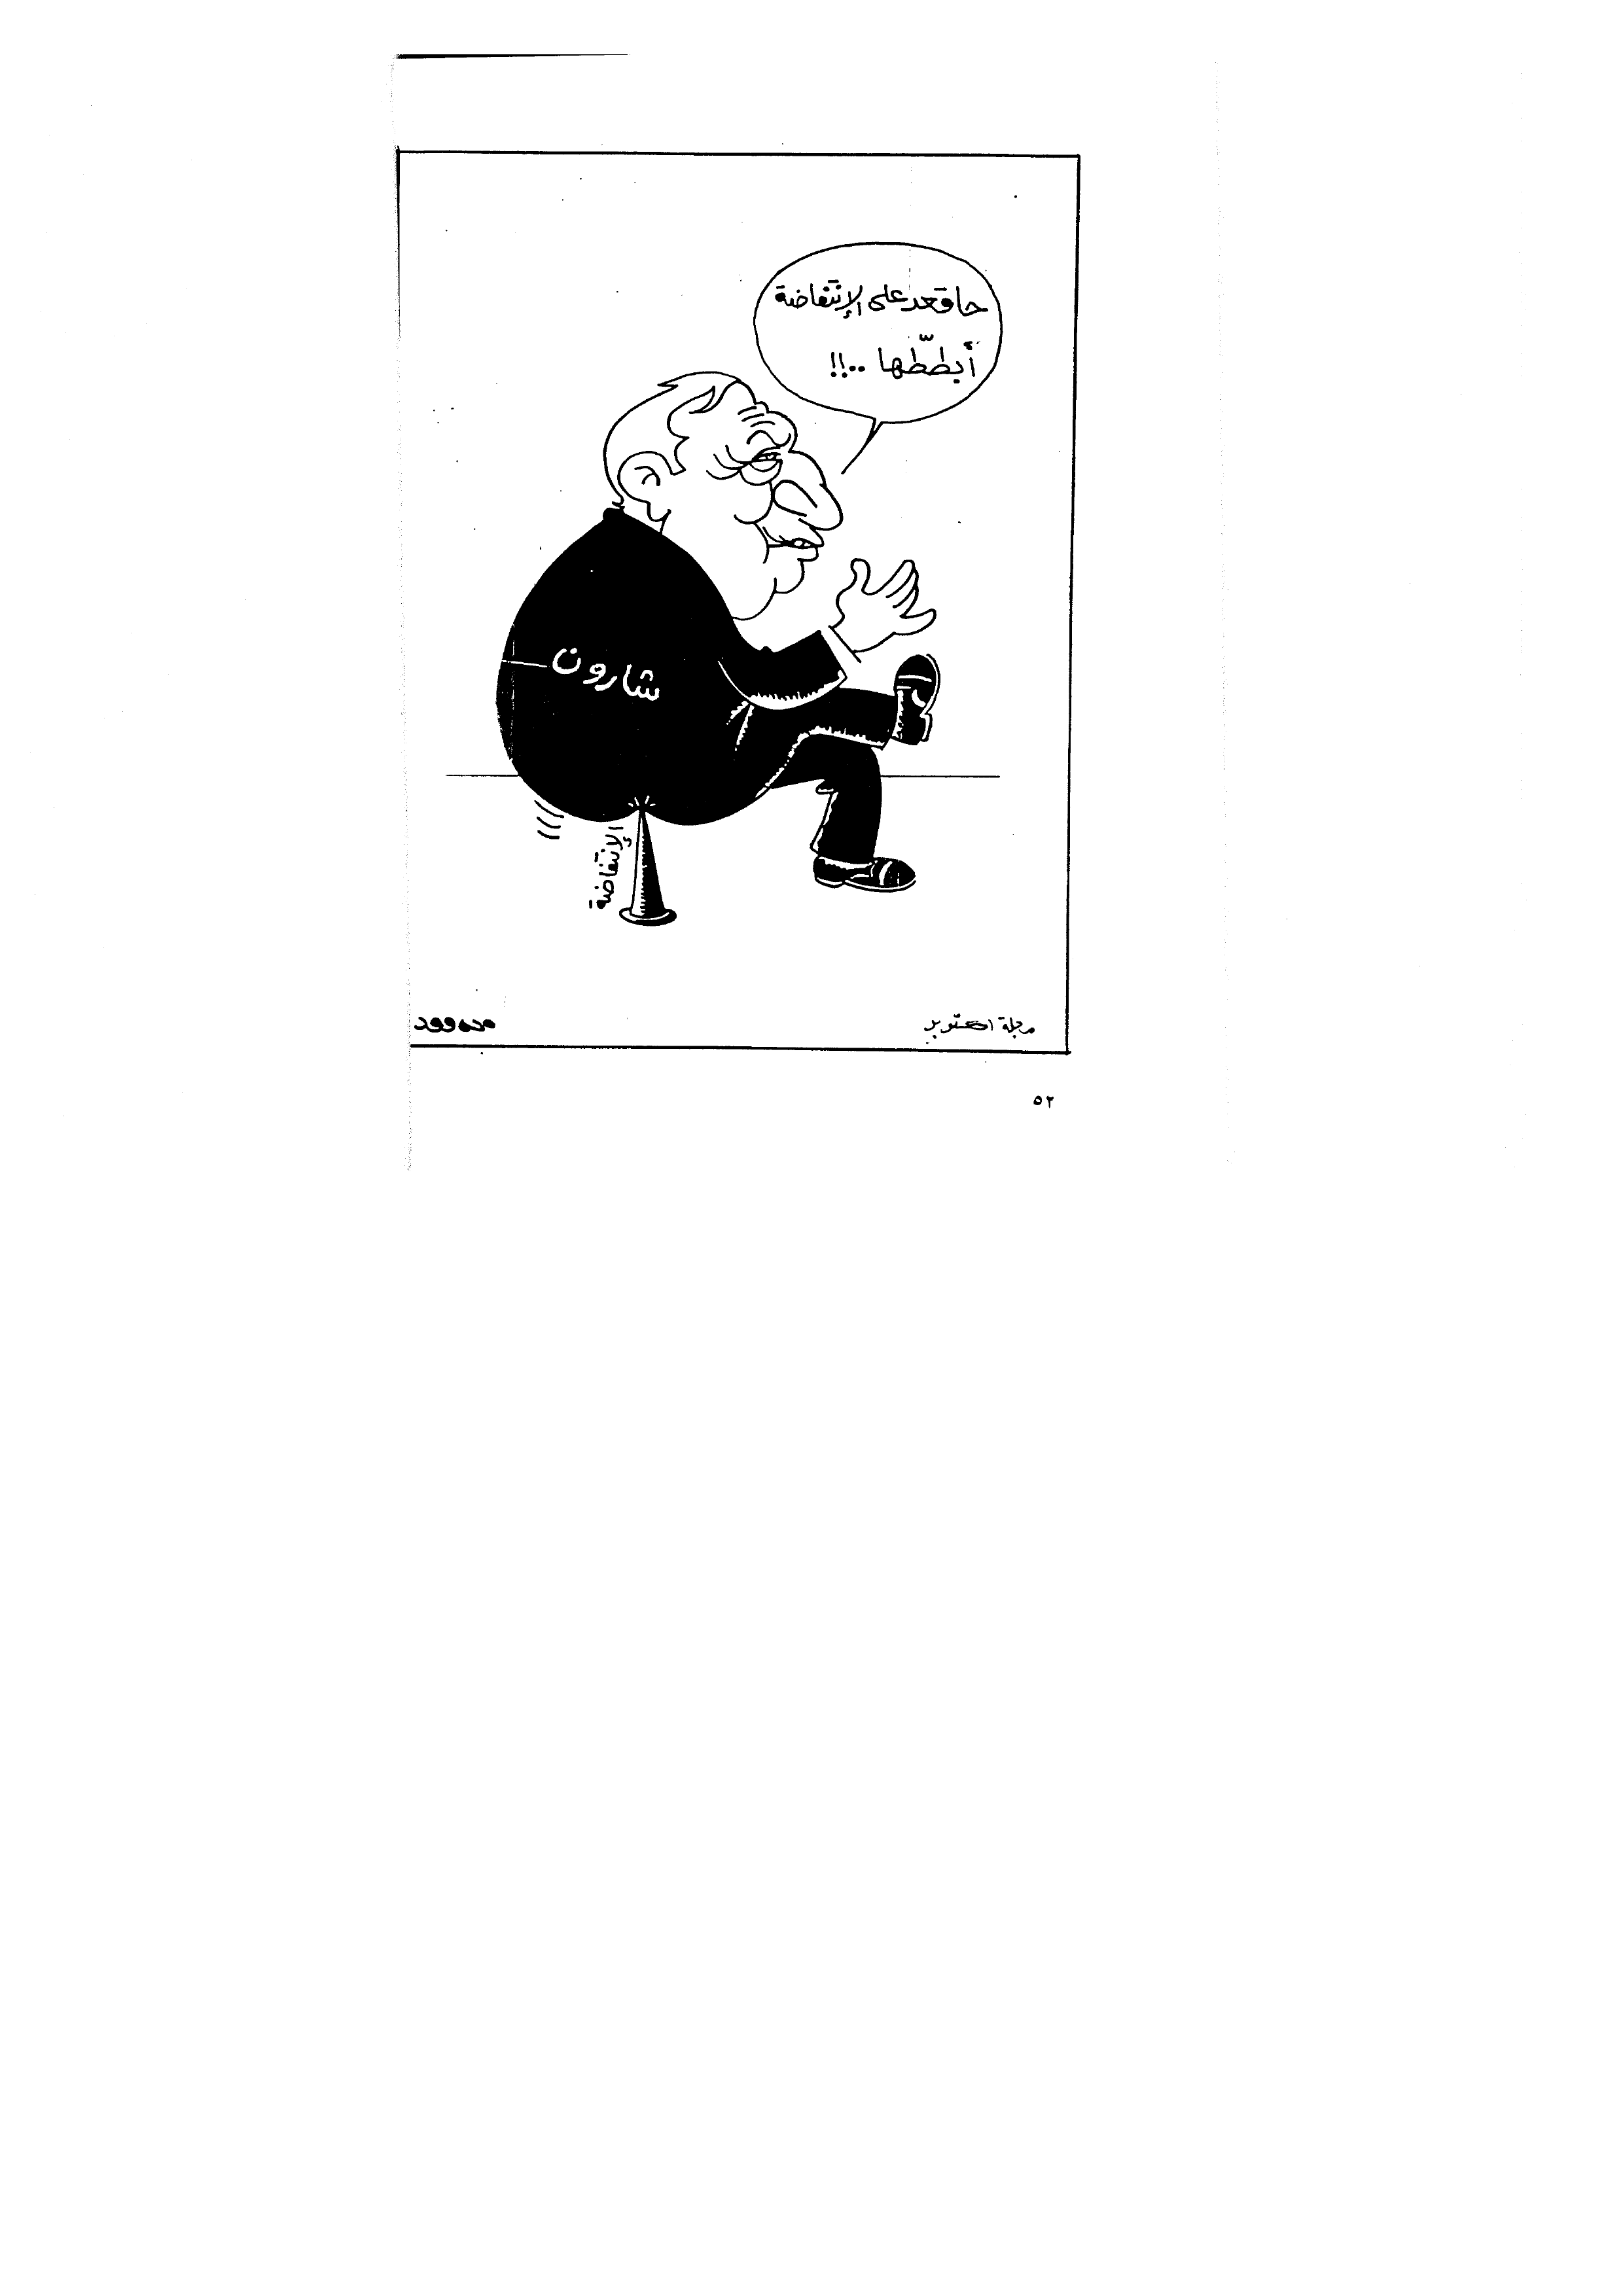 حاقعد على الإنتفاضة
أبططّها ..!!
شارون
الإنتفاضة
مجلة اكتوبر
٥٢